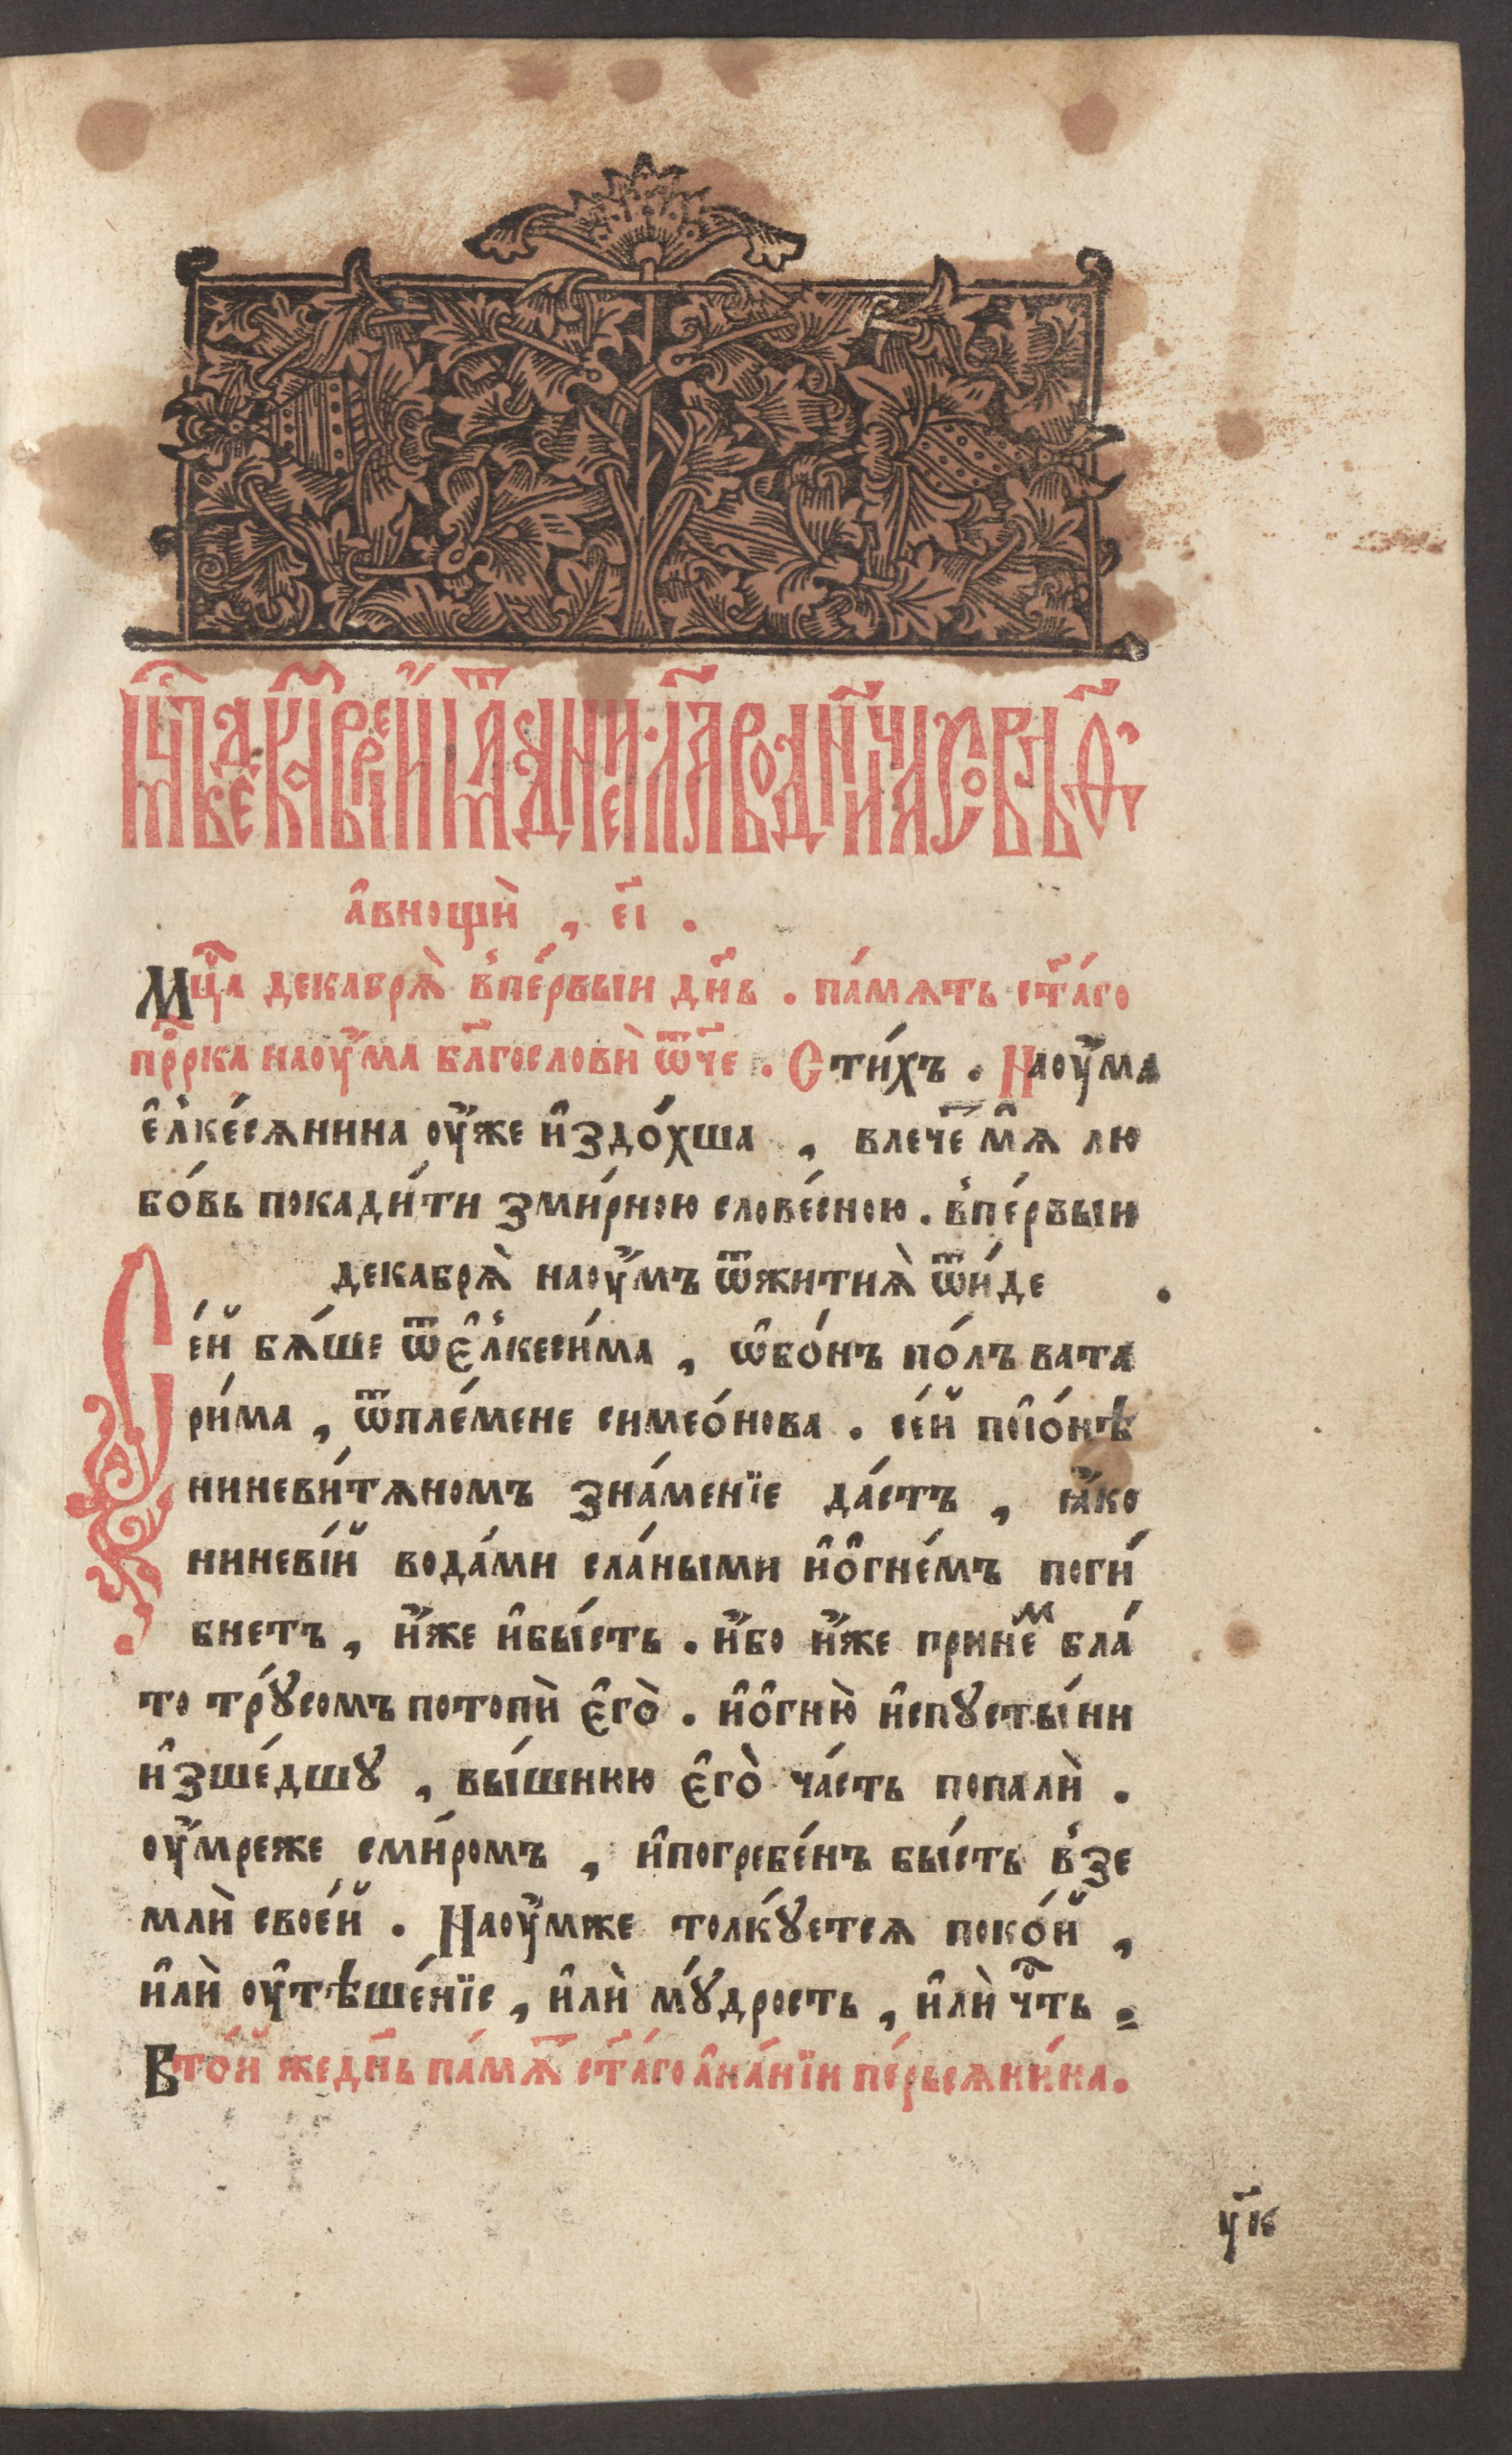 мцⷭ҇ъ декабрїй и҆мать дни ла в̾ дни часовъ ѳ҃
а҆внощѝ , є҃і .
Мцⷭ҇а декабрѧ̀ в̾пе́рвыи дн҃ь . па́мѧть ст҃а́го
прⷪ҇рка наоу́ма бл҃гословѝ ѿч҃е . Сти́хъ . Наоу́ма
є҆л̾ке́сѧнина оу҆́же и҆здо́хша , влече́ мѧ лю
бо́вь покади́ти змѵ́рною слове́сною . в̾пе́рвыи
декабрѧ̀ наоу́мъ ѿжитиѧ̀ ѿи́де .
Се́й бѧ́ше ѿє҆л̾кеси́ма , ѡ҆бо́нъ по́лъ вата
ри́ма , ѿпле́мене симео́нова . се́й поїо́нѣ
ниневи́тѧномъ зна́менїе да́стъ , ꙗ҆́ко
ниневі́й вода́ми сла́ными и҆о҆гне́мъ поги́
бнетъ , и҆́же и҆бы́сть . и҆́бо и҆́же прине́ⷨ бла́
то трꙋ́сомъ потопѝ є҆го̀ . и҆о҆гню̀ и҆спꙋсты́ни
и҆зше́дшꙋ , вы́шнюю є҆го̀ ча́сть попалѝ .
оу҆́мреже сми́ромъ , и҆погребе́нъ бы́сть в̾зе
млѝ свое́й . Наоу́мже толкꙋ́етсѧ поко́й ,
и҆лѝ оу҆тѣше́нїе , и҆лѝ мꙋ́дрость , и҆лѝ чⷭ҇ть .
Вто́й жедн҃ь па́мѧⷮ ст҃а́го а҆на́нїи пе́рьсѧни́на .
у҃к